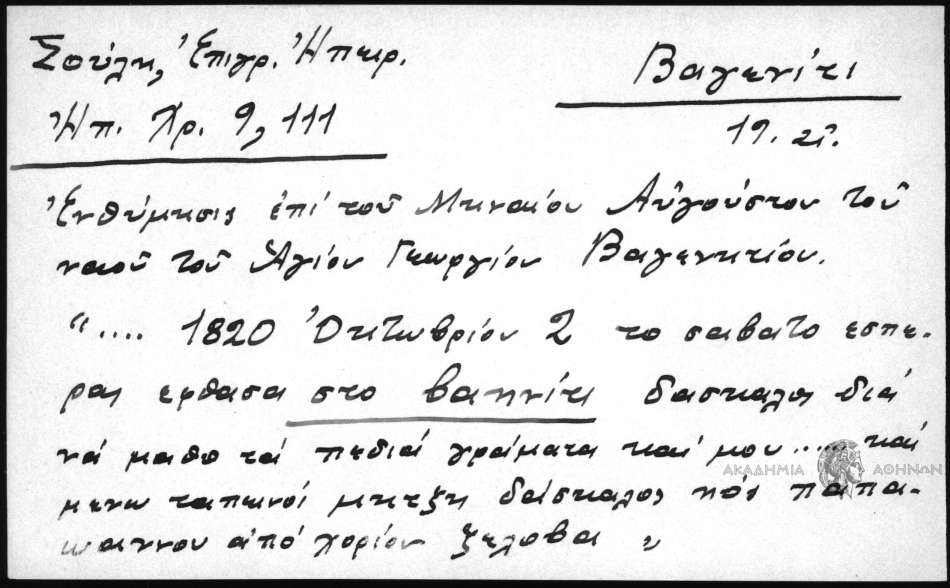 Σούλη, Ἐπιγρ. Ἠπειρ.
Βαγενίτι
Ἠπ. Χρ. 9, 111
19. αἰ.
Ἐνθύμησις ἐπί τοῦ Μηναίου Αὐγούστου τοῦ
ναοῦ τοῦ Ἁγίου Γεωργίου Βαγενιτίου.
".... 1820 Ὀκτωβρίου 2 το σαβατο εσπε-
ρας εφθασα στο βαηνίτι δασκαλος διά
νά μαθο τά πεδιά γράματα καί μου..... καί
μενω ταπεινοί μητξη δάσκαλος παπα-
ωαννου ἀπό χορίον ξελοβα "
ΑΚΑΔΗΜΙΑ ΑΘΗΝΩΝ